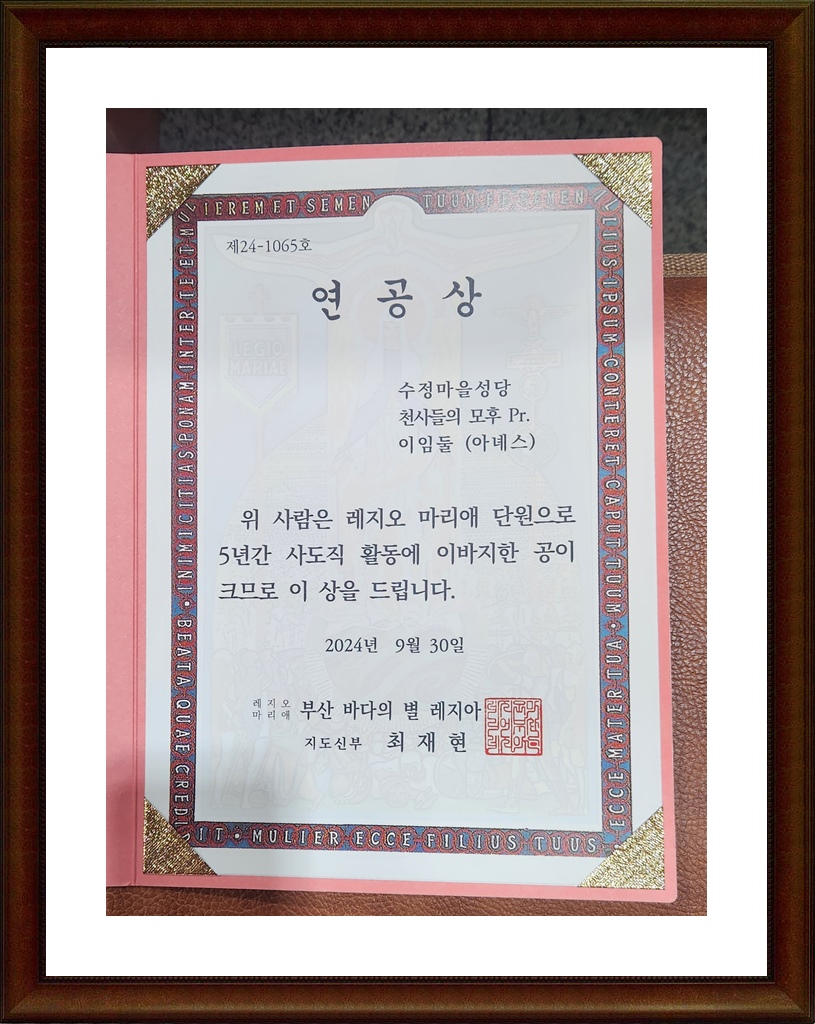 제24-1065호
연 공 상
수정마을성당
천사들의 모후 Pr.
이임둘 (아녜스)
위 사람은 레지오 마리애 단원으로
5년간 사도직 활동에 이바지한 공이
크므로 이 상을 드립니다.
2024년 9월 30일
레지오
마리애
부산 바다의 별 레지아
지도신부 최 재 현
LEGIO
MARIAE
INIMICITIAS PONAM INTER TE ET
MULIEREM ET SEMEN
TUUM ET SEMEN
ILLIUS IPSUM CONTERET CAPUT TUUM
ECCE MATER TUA
MULIER ECCE FILIUS TUUS
BEATA QUAE CREDIDIT